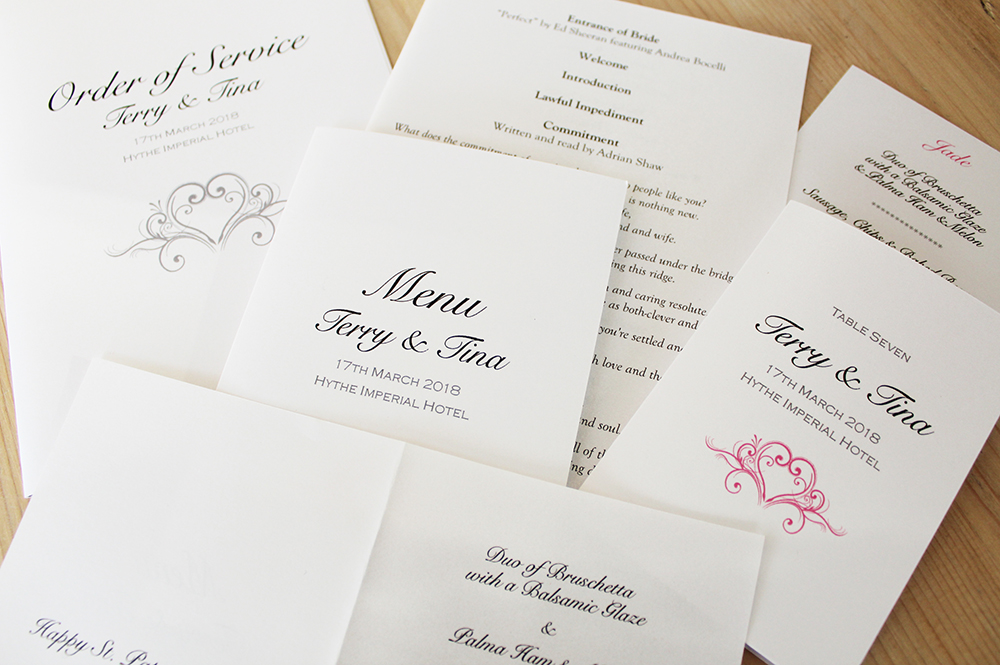 Order of Service
Terry & Tina
17th March 2018
Hythe Imperial Hotel
Entrance of Bride
"Perfect" by Ed Sheeran featuring Andrea Bocelli
Welcome
Introduction
Lawful Impediment
Commitment
Written and read by Adrian Shaw
What does the commitment of
people like you?
is nothing new.
and wife.
passed under the bridge
ing this ridge.
and caring resolute
as both-clever and
you're settled and
love and the
and soul
ll of the
Jade
Duo of Bruschetta
with a Balsamic Glaze
& Palma Ham & Melon
***************
Sausage, Chips & Baked
Menu
Terry & Tina
17th March 2018
Hythe Imperial Hotel
Table Seven
Terry & Tina
17th March 2018
Hythe Imperial Hotel
Happy St. Pat
Duo of Bruschetta
with a Balsamic Glaze
&
Palma Ham &